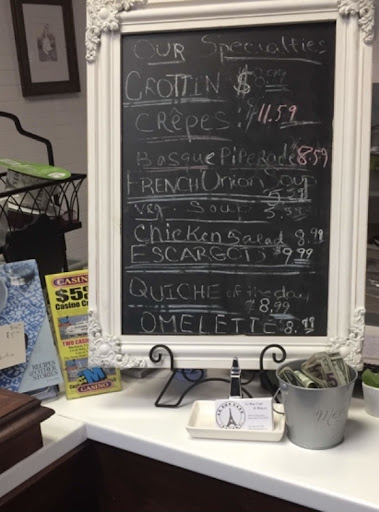 OUR Specialties
CROTTIN $8.99
CRêPES $11.59
Basque Piperade $8.59
FRENCH Union Soup
5.51
veg. Soup 5.55
Chicken Salad 8.99
ESCARGOTS $9.99
QUICHE of the day
$8.99
OMELETTE $8.99
CASINO
$5
Casino
RECIPES
STORIES
CASINO